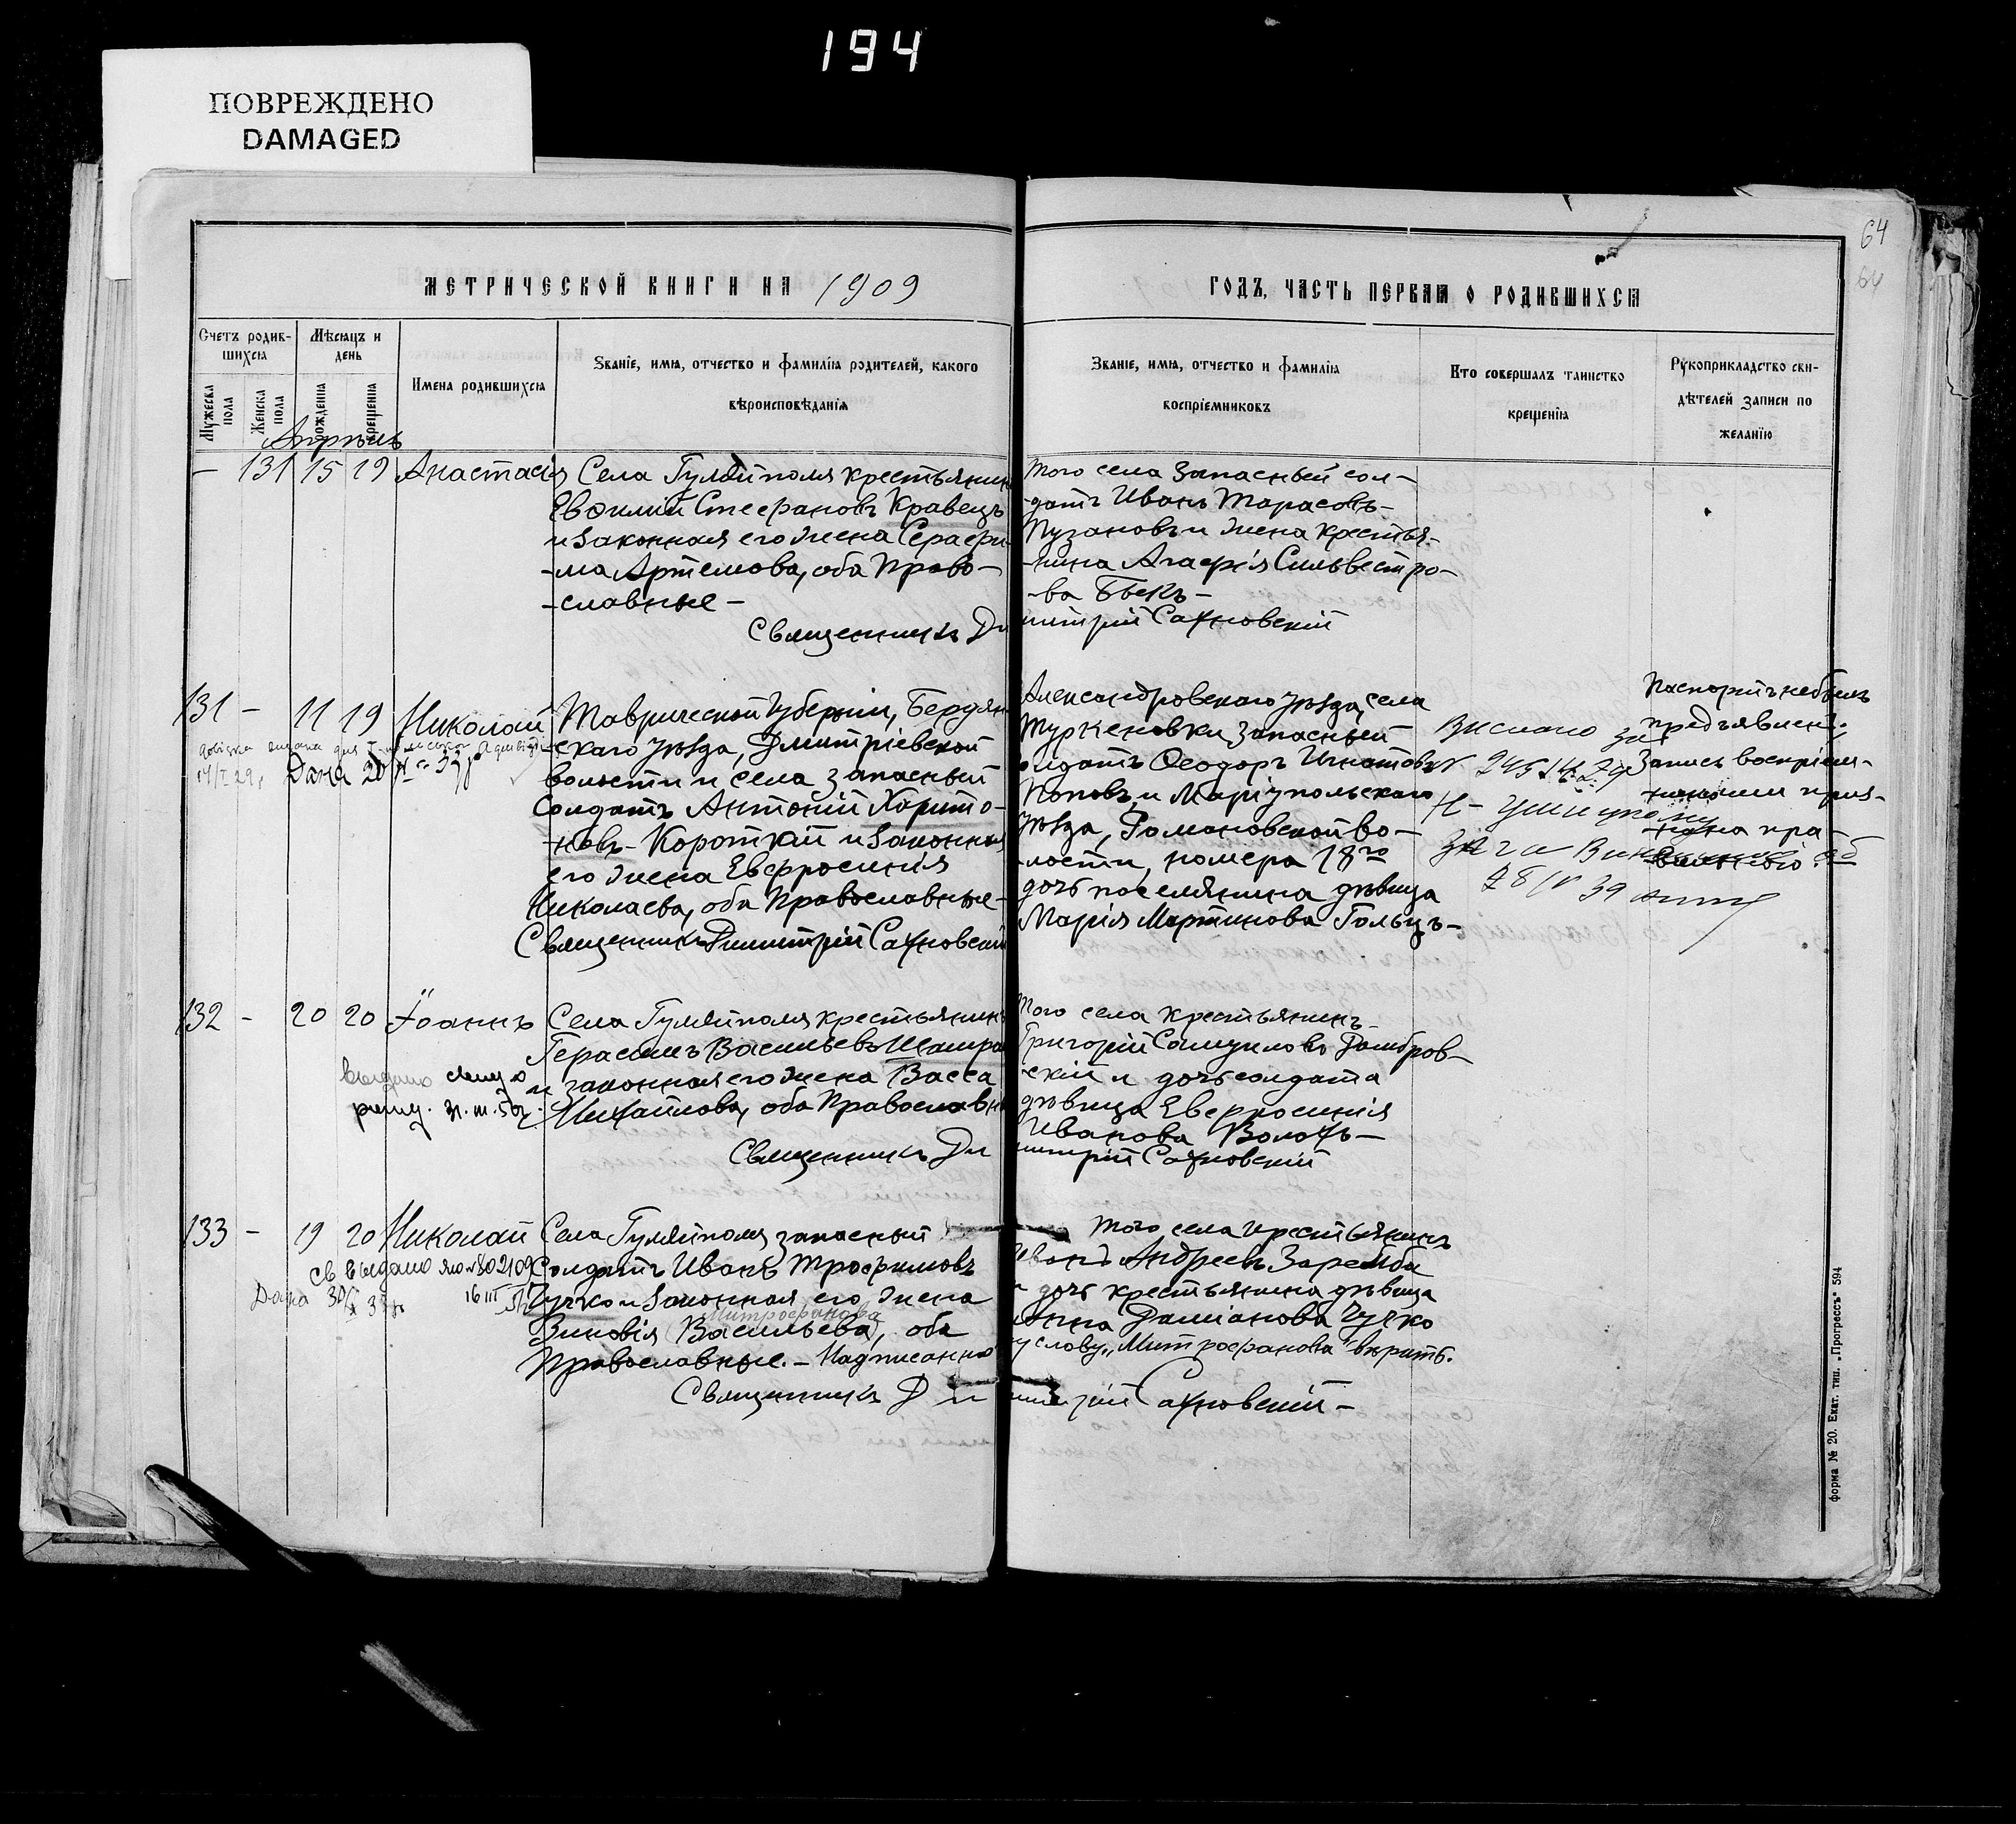 194
ПОВРЕЖДЕНО
DAMAGED
64
64
МЕТРИЧЕСКОЙ КНИГИ НА 1909
ГОДЪ, ЧАСТЬ ПЕРВАЯ О РОДИВШИХСЯ
Счетъ родив-
шихся
Мужеска пола
Женска пола
Мѣсяцъ и
день
рожденія
крещенія
Имена родившихся
Званіе, имя, отчество и фамилія родителей, какого
вѣроисповѣданія
Званіе, имя, отчество и фамилія
воспріемниковъ
Кто совершалъ таинство
крещенія
Рукоприкладство сви-
дѣтелей записи по
желанію
Апрѣль
– 131 15 19 Анастасія
Села Гуляйполя крестьянинъ
Евѳимій Стефановъ Кравецъ
и законная его жена Серафи-
-ма Артемова, оба Право-
-славные –
того села запасный сол-
-датъ Иванъ Тарасовъ-
Пузановъ и жена крестья-
-нина Агафія Сильвестро-
-ва Бѣкъ –
Священникъ Димитрій Сахновскій
131 – 11 19 Николай
Дана 20
14/I 29
Таврической губерніи, Бердян-
скаго уѣзда, Дмитріевской
волости и села запасный
солдатъ Антоній Харито-
новъ Короткій и законная
его жена Евфросинія
Николаева, оба Православные-
Священникъ Димитрій Сахновскій
Александровскаго уѣзда, села
Туркеновки запасный
солдатъ Ѳеодоръ Игнатовъ
Поповъ и Маріупольскаго
уѣзда, Романовской во-
-лости, номера 18го
дочь поселянина дѣвица
Марія Мартинова Гольцъ-
Выслано за
№ 245 14.1.29
39
Паспортъ небылъ
предъявленъ.
Запись воспріем-
132 – 20 20 Іоаннъ
выдано
31.III.56г.
Села Гуляйполя крестьянинъ
Герасимъ Васильевъ Шамра
и законная его жена Васса
Михайлова, оба Православные
того села крестьянинъ
Григорій Самуиловъ Домбров-
скій и дочь солдата
дѣвица Евфросинія
Иванова Волохъ –
Священникъ Димитрій Сахновскій
133 – 19 20 Николай
св выдано
16 III
Дана
Села Гуляйполя запасный
солдатъ Иванъ Трофимовъ
Чучко и законная его жена
Митрофанова
Зиновія (Васильева), оба
Православные. – Надписанно
того села крестьянинъ
Иванъ Андреевъ Заремба
и дочь крестьянина дѣвица
Анна Даміанова Чучко
му слову „Митрофанова" вѣрить.
Священникъ Димитрій Сахновскій –
форма № 20. Екат. тип. „Прогрессъ" 594